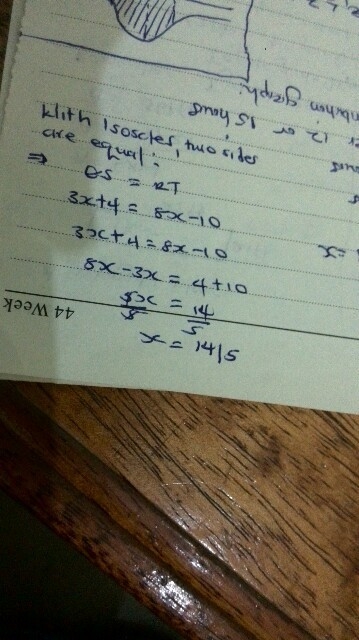 With Isosceles, two sides
are equal:
⇒ QS = RT
3x+4 = 8x-10
3x+4 = 8x-10
8x-3x = 4+10
5x/5 = 14/5
x = 14/5
44 Week
graph.
12 or 15 hours